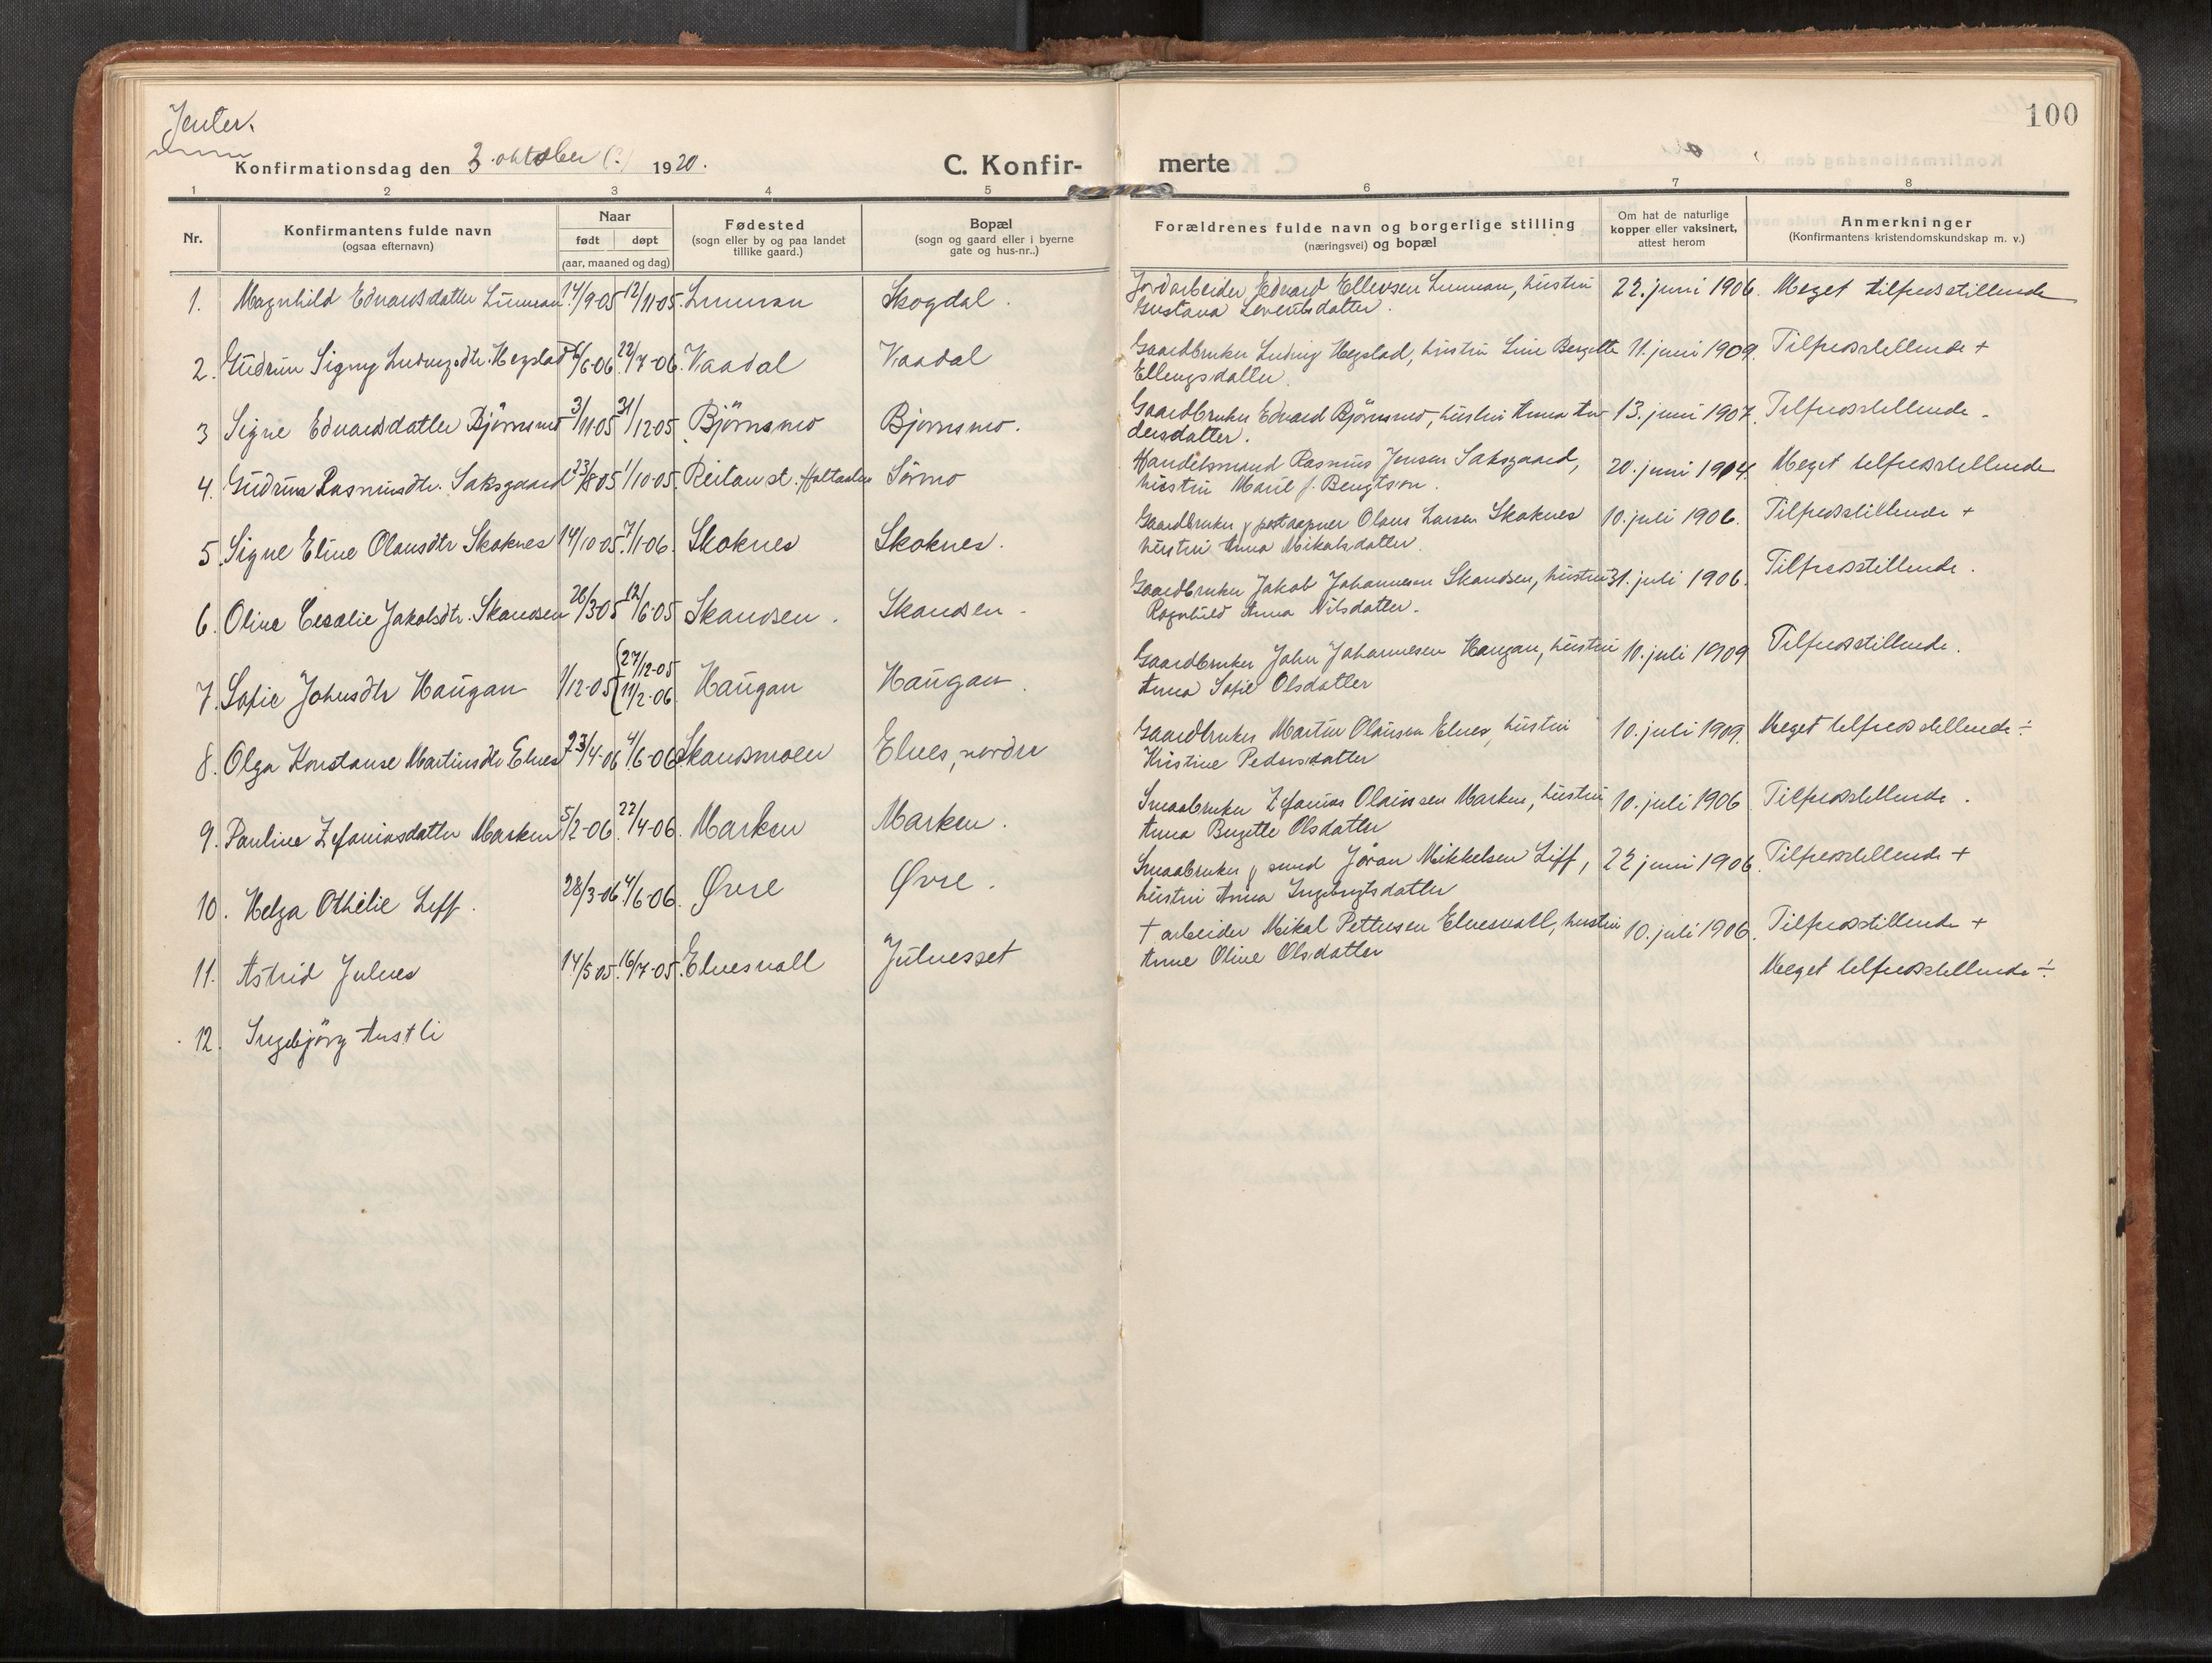 100
Jenter.
Konfirmationsdag den 3 oktober (?) 1920.
C. Konfirmerte
1 2 3 4 5 6 7 8
Nr.
Konfirmantens fulde navn
(ogsaa efternavn)
Naar
født døpt
(aar, maaned og dag)
Fødested
(sogn eller by og paa landet
tillike gaard.)
Bopæl
(sogn og gaard eller i byerne
gate og hus-nr..)
Forældrenes fulde navn og borgerlige stilling
(næringsvei) og bopæl
Om hat de naturlige
kopper eller vaksinert,
attest herom
Anmerkninger
(Konfirmantens kristendomskundskap m. v.)
1. Magnhild Edvardsdatter Limman 14/9-05 12/11-05. Limman Skogdal. Jordarbeider Edvard Ellevsen Limman, hustru 22. juni 1906. Meget tilfredsstillende
Gustava Lorentsdatter.
2. Gudrun Signy Ludvigsdtr. Hegstad 6/6-06. 22/7-06. Vaadal Vaadal Gaardbruker Ludvig Hegstad, hustru Line Bergitte 11. juni 1909. Tilfredsstillende +
Ellingsdatter.
3 Signe Edvardsdatter Björnsmo 3/11-05 31/12-05. Björnsmo Bjornsmo. Gaardbruker Edvard Bjørnsmo, hustru Anna An- 13. juni 1907. Tilfredsstillende.
dersdatter.
4. Gudrun Rasmusdtr. Saksgaard 23/8-05 1/10-05. Reitan st. Holtaalen Sørmo Handelsmand Rasmus Jensen Saksgaard, 20. juni 1904. Meget tilfredsstillende
hustru Marie f. Bengtson.
5. Signe Eline Olausdtr Skoknes 14/10-05. 7/1-06. Skoknes Skoknes. Gaardbruker & postaapner Olaus Larsen Skoknes 10. juli 1906. Tilfredsstillende +
hustru Anna Mikalsdatter.
6. Oline Cesalie Jakobsdtr. Skandsen 26/3-05 12/6-05 Skandsen. Skandsen. Gaardbruker Jakob Johannesen Skandsen, hustru 31. juli 1906. Tilfredsstillende.
Ragnhild Anna Nilsdatter.
7. Sofie Johnsdtr Haugan 1/12-05 {27/12-05 11/2-06. Haugan Haugan. Gaardbruker John Johannesen Haugan, hustru 10. juli 1909 Tilfredsstillende.
Anna Sofie Olsdatter
8. Olga Konstanse Martinsdtr Elnes 23/4-06 4/6-06. Skandsmoen Elnes, nordre Gaardbruker Martin Olausen Elnes, hustru 10. juli 1909. Meget tilfredsstillende ÷
Kristine Pedersdatter
9. Pauline Zefaniasdatter Marken 5/2-06. 22/4-06. Marken Marken. Smaabruker Zefanias Olaissen Marken, hustru 10. juli 1906 Tilfredsstillende.
Anna Bergitte Olsdatter
10. Helga Othelie Liff. 28/3-06 4/6-06. Øvre Øvre. Smaabruker & smed Jöran Mikkelsen Liff, 22 juni 1906. Tilfredsstillende +
hustru Anna Ingebrigtsdatter
11. Astrid Julnes 14/5-05. 16/7-05. Elnesvall Julnesset + arbeider Mikal Pettersen Elnesvall, hustru 10. juli 1906. Tilfredsstillende +
Anne Oline Olsdatter
12. Ingebjörg Austli Meget tilfredsstillende ÷